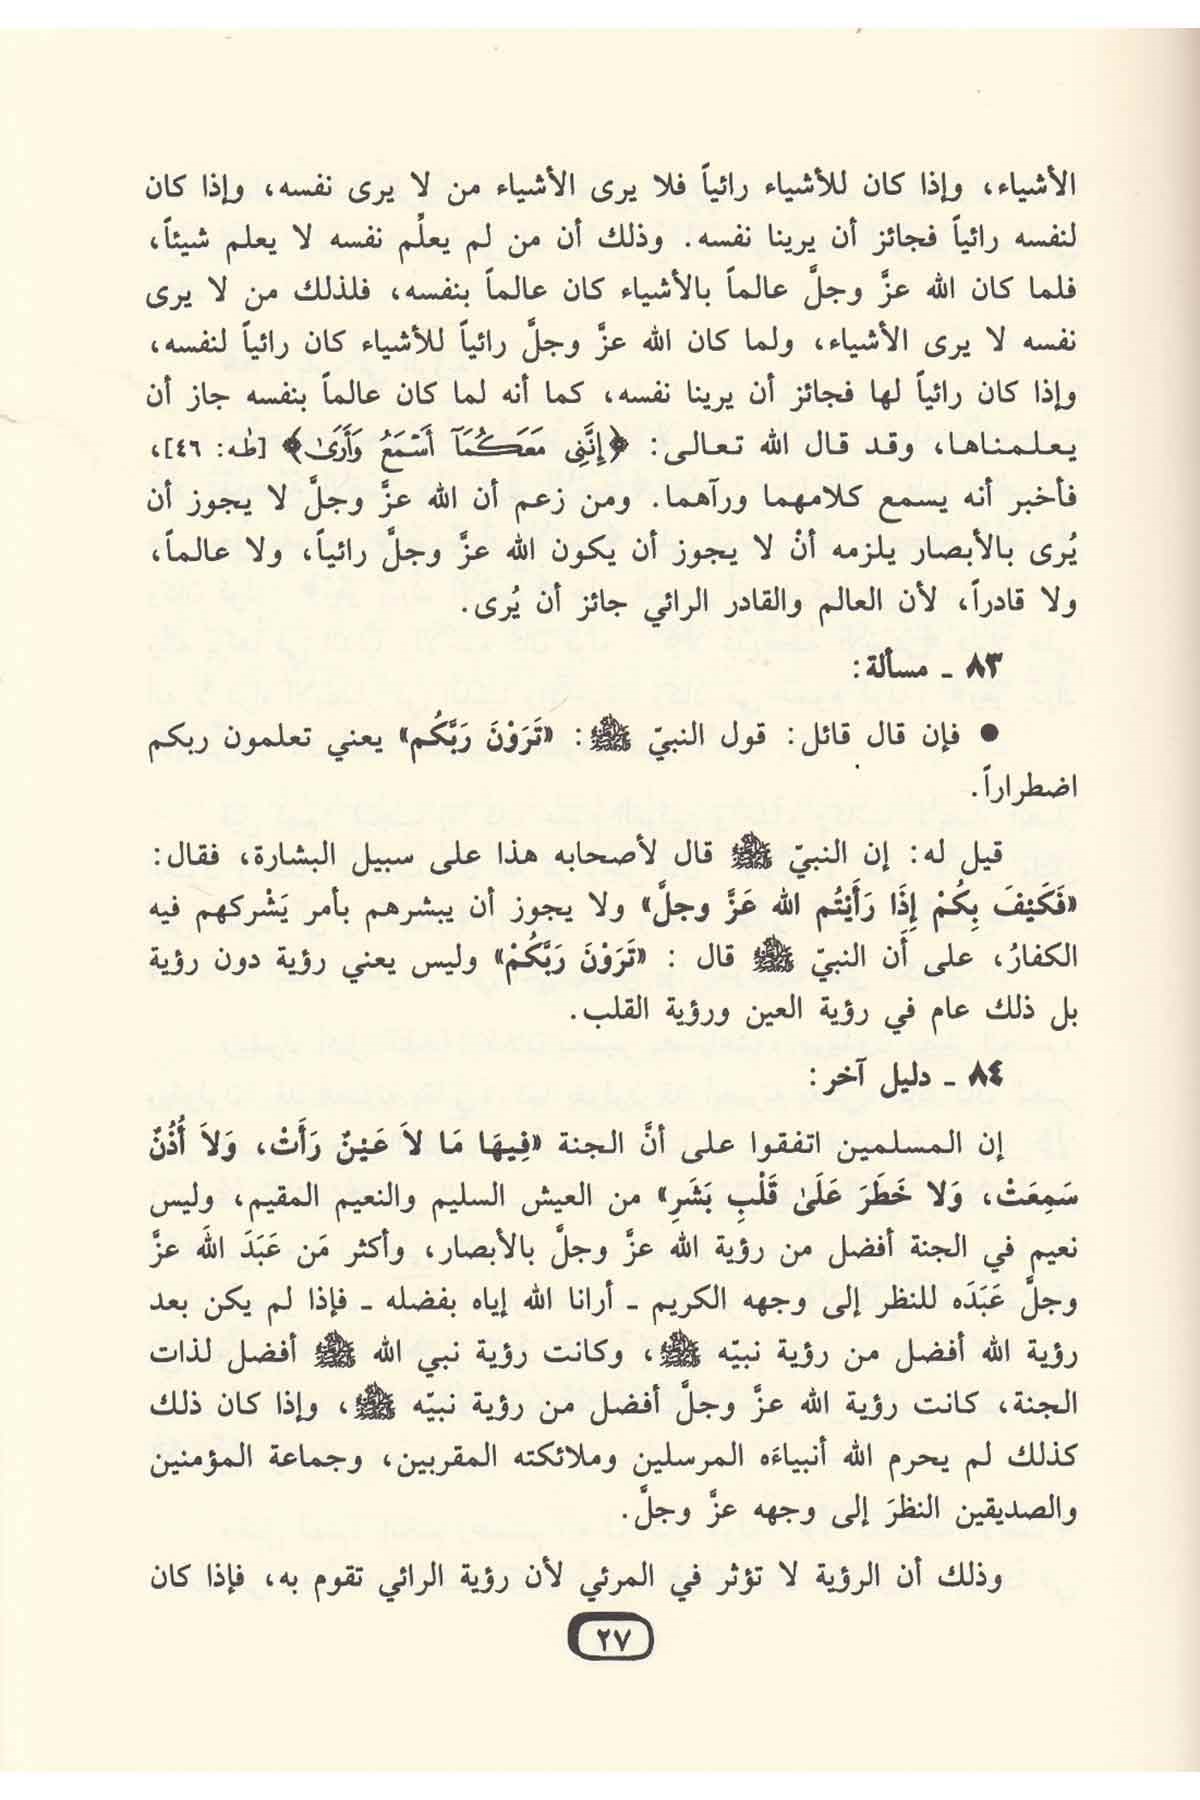 الأشياء، وإذا كان للأشياء رائياً فلا يرى الأشياء من لا يرى نفسه، وإذا كان
لنفسه رائياً فجائز أن يرينا نفسه. وذلك أن من لم يعلَم نفسه لا يعلم شيئاً،
فلما كان الله عزَّ وجلَّ عالماً بالأشياء كان عالماً بنفسه، فلذلك من لا يرى
نفسه لا يرى الأشياء، ولما كان الله عزَّ وجلَّ رائياً للأشياء كان رائياً لنفسه،
وإذا كان رائياً لها فجائز أن يرينا نفسه، كما أنه لما كان عالماً بنفسه جاز أن
يعلمناها، وقد قال الله تعالى: ﴿إِنَّنِي مَعَكُمَآ أَسْمَعُ وَأَرَىٰ﴾ [طه: ٤٦]،
فأخبر أنه يسمع كلامهما ورآهما. ومن زعم أن الله عزَّ وجلَّ لا يجوز أن
يُرى بالأبصار يلزمه أنْ لا يجوز أن يكون الله عزَّ وجلَّ رائياً، ولا عالماً،
ولا قادراً، لأن العالم والقادر الرائي جائز أن يُرى.
٨٣ ـ مسألة:
● فإن قال قائل: قول النبيّ ﷺ: «تَرَوْنَ رَبَّكُم» يعني تعلمون ربكم
اضطراراً.
قيل له: إن النبيّ ﷺ قال لأصحابه هذا على سبيل البشارة، فقال:
«فَكَيْفَ بِكُمْ إِذَا رَأَيْتُم الله عَزَّ وجلَّ» ولا يجوز أن يبشرهم بأمر يَشْركهم فيه
الكفارُ، على أن النبيّ ﷺ قال : «تَرَوْنَ رَبَّكُمْ» وليس يعني رؤية دون رؤية
بل ذلك عام في رؤية العين ورؤية القلب.
٨٤ ـ دليل آخر:
إن المسلمين اتفقوا على أنَّ الجنة «فِيهَا مَا لاَ عَيْنٌ رَأَتْ، وَلاَ أُذُنٌ
سَمِعَتْ، وَلا خَطَرَ عَلَىٰ قَلْبِ بَشَرِ» من العيش السليم والنعيم المقيم، وليس
نعيم في الجنة أفضل من رؤية الله عزَّ وجلَّ بالأبصار، وأكثر مَن عَبَدَ اللهَ عزَّ
وجلَّ عَبَدَه للنظر إلى وجهه الكريم ـ أرانا الله إياه بفضله ـ فإذا لم يكن بعد
رؤية الله أفضل من رؤية نبيّه ﷺ، وكانت رؤية نبي الله ﷺ أفضل لذات
الجنة، كانت رؤية الله عزَّ وجلَّ أفضل من رؤية نبيّه ﷺ، وإذا كان ذلك
كذلك لم يحرم الله أنبياءَه المرسلين وملائكته المقربين، وجماعة المؤمنين
والصديقين النظرَ إلى وجهه عزَّ وجلَّ.
وذلك أن الرؤية لا تؤثر في المرئي لأن رؤية الرائي تقوم به، فإذا كان
٢٧